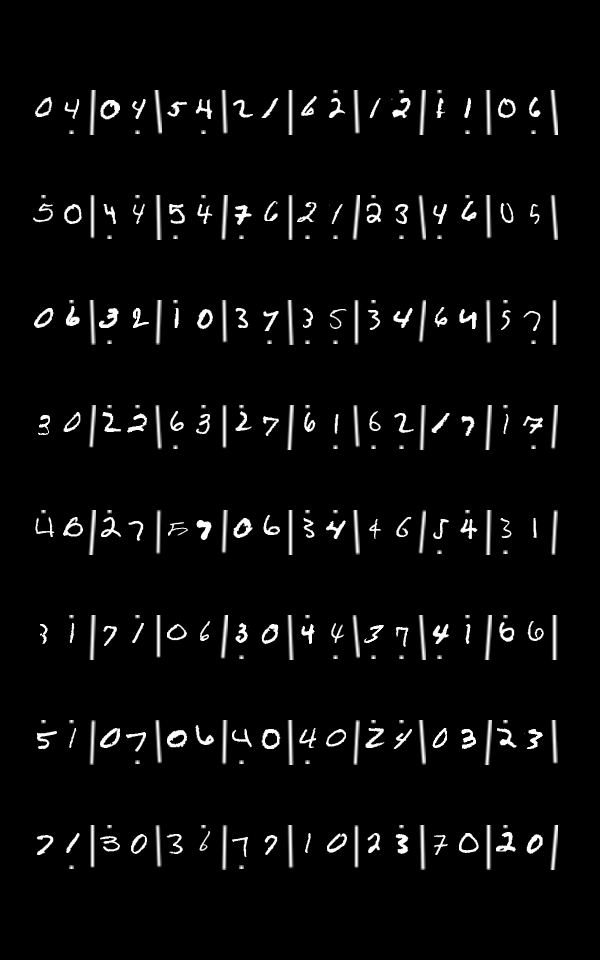 0 4̣ | 0 4̇ | 5 4̣ | 2 1 | 6 2̇ | 1 2̇ | 1̇ 1̣ | 0 6̣ |
5̇ 0 | 4̣ 4̇ | 5̣ 4̇ | 7̣ 6 | 2̣ 1̣ | 2̇ 3̣ | 4̣ 6̇ | 0 5 |
0 6̇ | 3̣ 2 | 1̇ 0 | 3 7̣ | 3̣ 5̣ | 3̇ 4 | 6 4 | 5̇ 7̣ |
3 0 | 2̇ 2̇ | 6̣ 3̇ | 2̇ 7 | 6̇ 1̣ | 6̣ 2̣ | 1 7 | 1̇ 7̣ |
4̇ 6 | 2̇ 7 | 5 7 | 0 6 | 3̇ 4̇ | 4 6 | 5̣ 4̇ | 3̣ 1 |
3 1̇ | 7 1̇ | 0 6 | 3̣ 0 | 4̇ 4̣ | 3̣ 7̣ | 4̣ 1̇ | 6̇ 6 |
5̇ 1̇ | 0 7̣ | 0 6 | 4̣ 0 | 4̣ 0 | 2̇ 4̇ | 0 3 | 2̇ 3 |
7 1̣ | 3̇ 0 | 3 6̇ | 7̣ 7 | 1 0 | 2 3̇ | 7 0 | 2̇ 0 |